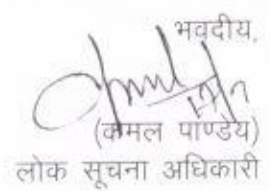 भवदीय,
(कमल पाण्डेय)
लोक सूचना अधिकारी